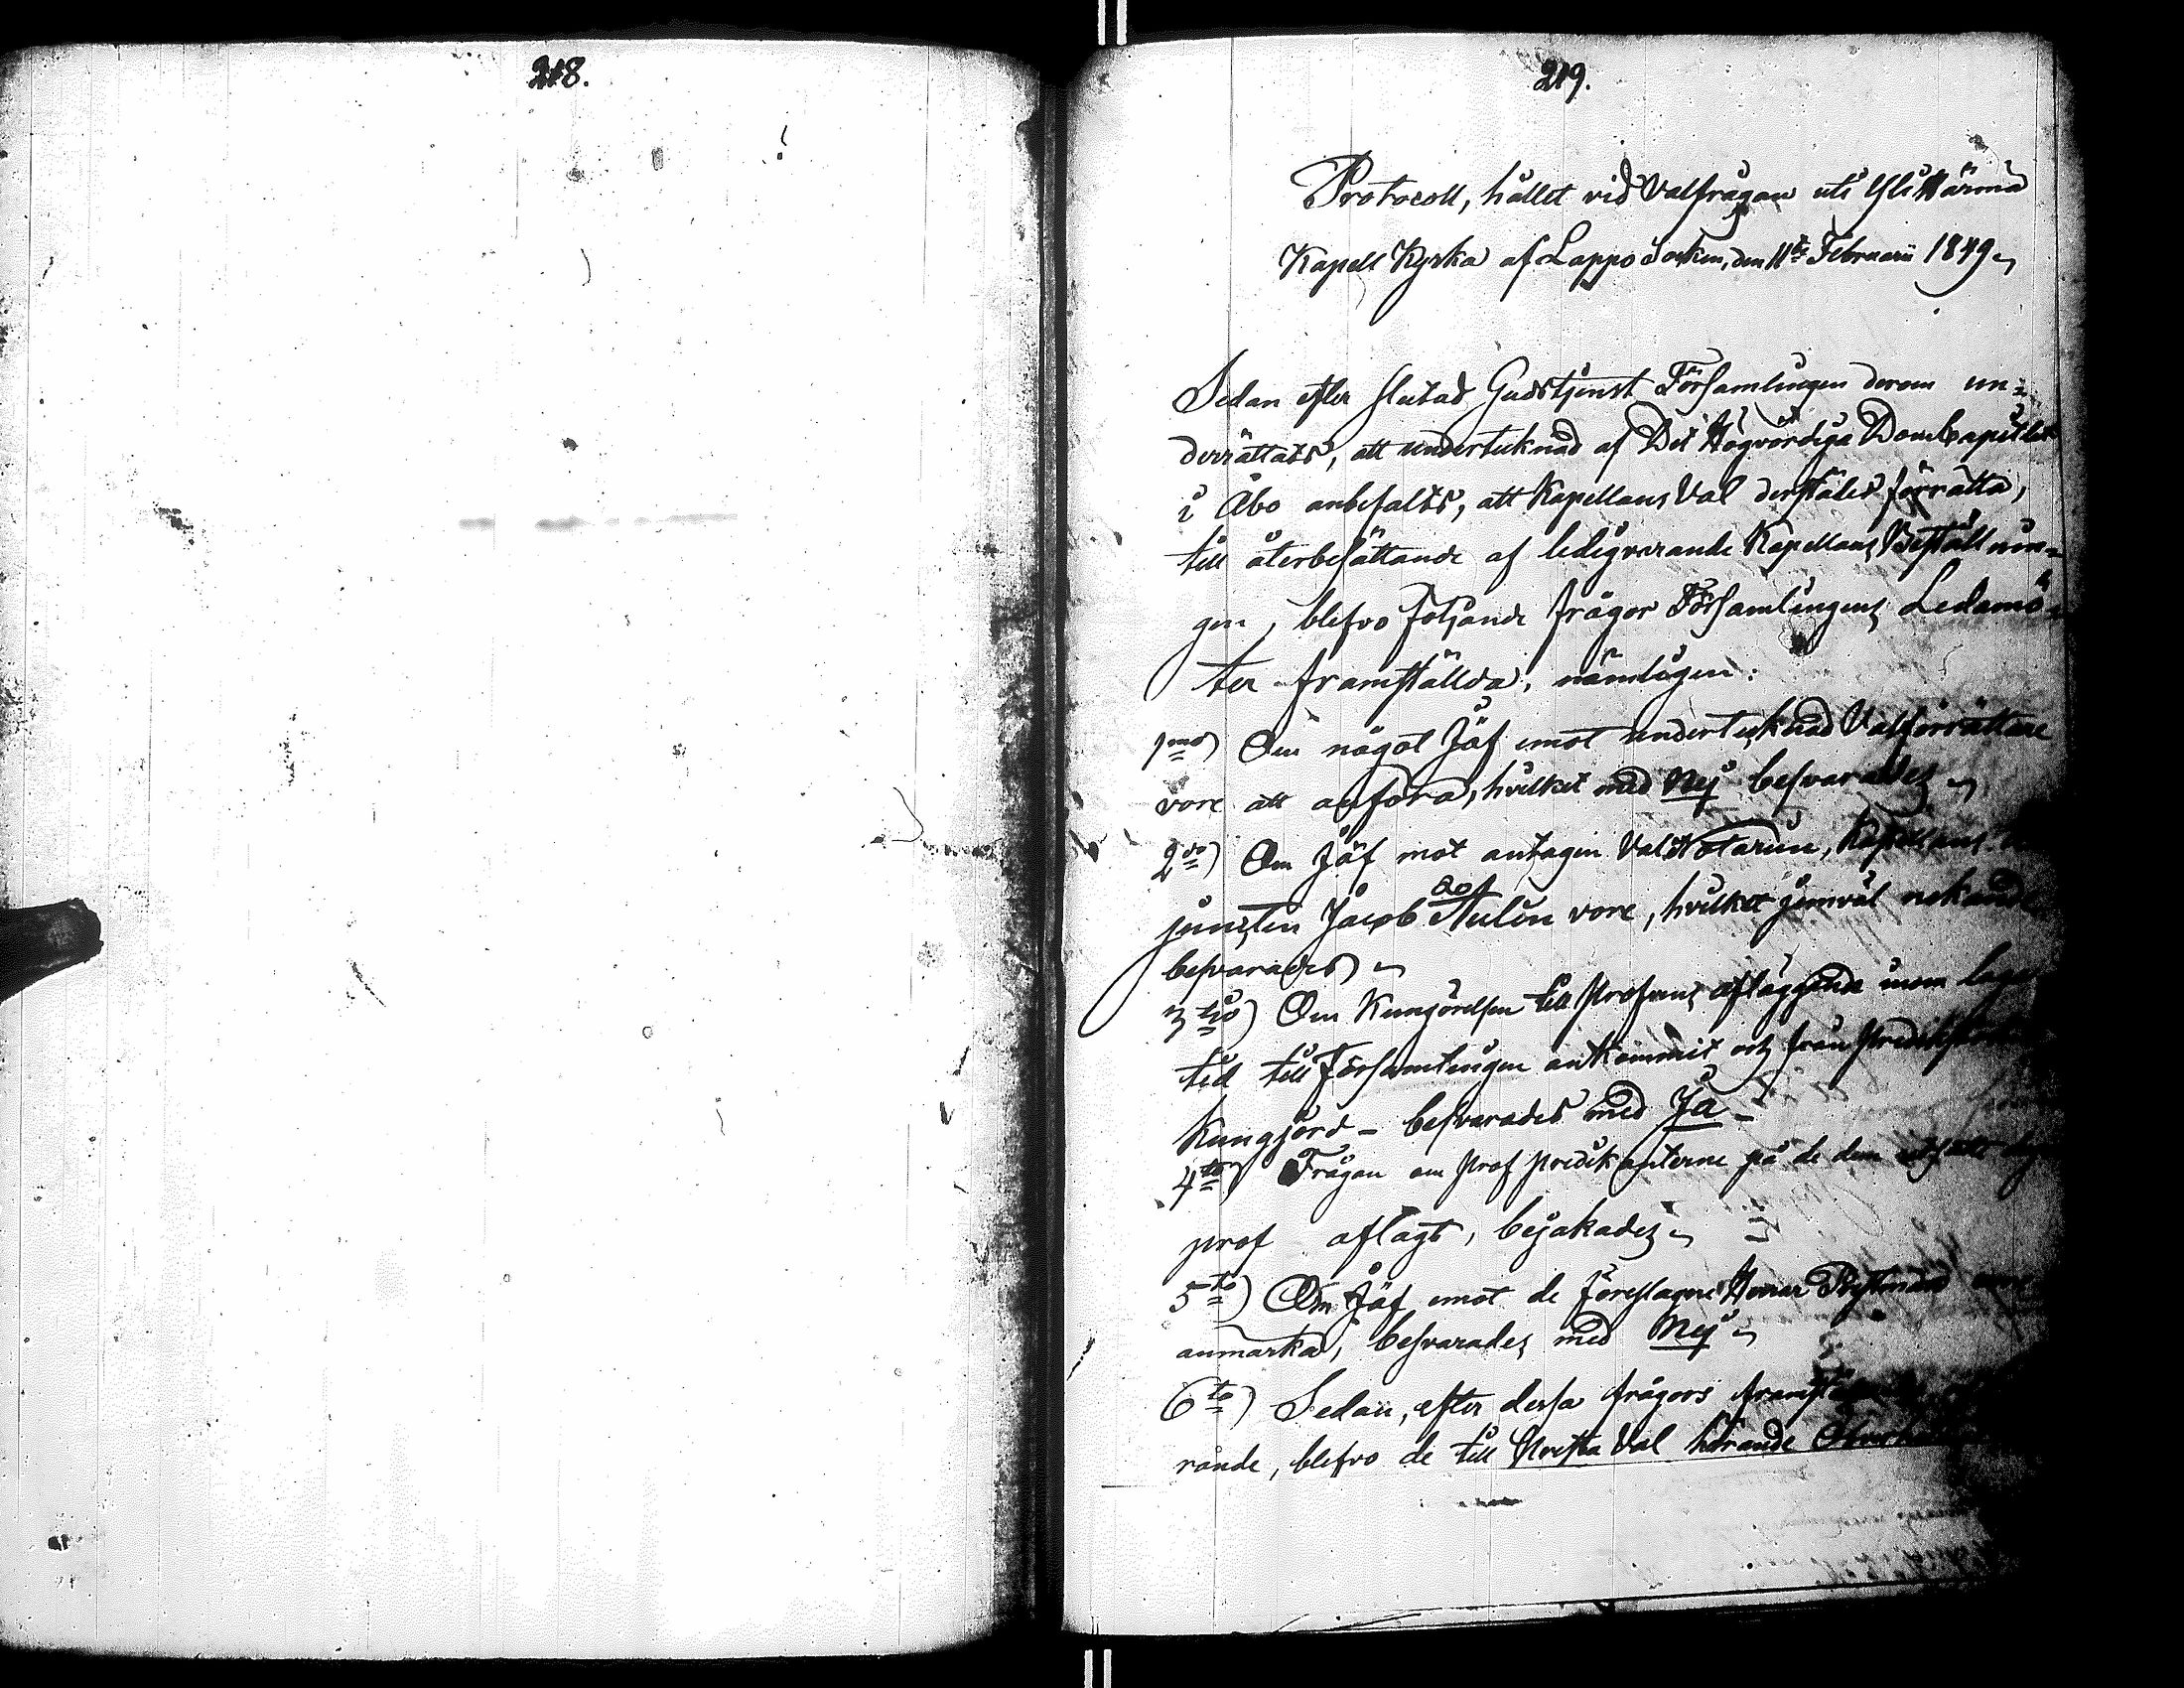 218.
219.
Protocoll, hållet vid Valfrågan uti Yli Härmä
Kapell Kyrka af Lappo Socken, den 11te Februarii 1849
Sedan efter slutad Gudstjenst Församlingen derom un=
derrättats, att undertecknad af Det Högvördiga DomCapitlet
i Åbo anbefalts, att Kapellans Val derstädes förrätta,
till återbesättande af ledigvarande Kapellans Beställnin=
gen, blefvo följande frågor Församlingens Ledamö=
ter framställda, nämligen:
1mo) Om något Jäf emot undertecknad Valförrättare
vore att anföra, hvilket med Nej besvarades
2do) Om Jäf mot antagen ValNotarien, Kapellans
juncten Jacob Aulin vore, hvilket jemväl nekande
besvarades
3tio) Om Kungörelsen till Profvens afläggande inom laga
tid till Församlingen ankommit och från
Kungjord - besvarades med Ja -
4to) Frågan om Prof predikanterne på de dem
prof aflagt, bejakades
5to) Om Jäf emot de föreslagne Herrar Prestmän
anmärka, besvarades med Nej
6to) Sedan, efter dessa frågors
rande, blefvo de till Presta Val hörande